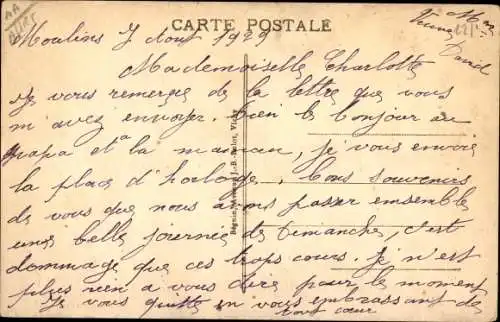 CARTE POSTALE
Moulins 7 Aout 1929
Mademoiselle Charlotte
Je vous remerçie de la lettre que vous
m'avez envoyer. Bien le bonjour au
papa et a la maman, je vous envoie
la place d'horloge. Bons souvenirs
de vous que nous avons passer ensemble
une belle journée de Dimanche, c'est
dommage que ces trops cours. Je n'est
plus rien a vous dire pour le moment
Je vous quitte en vous embrassant de
tout cœur
Mme
Veuve
David